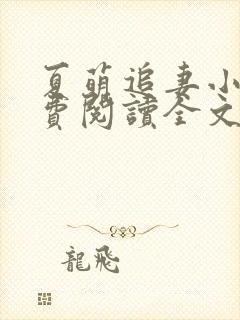 夏萌追妻小
費閱讀全文
龍飛